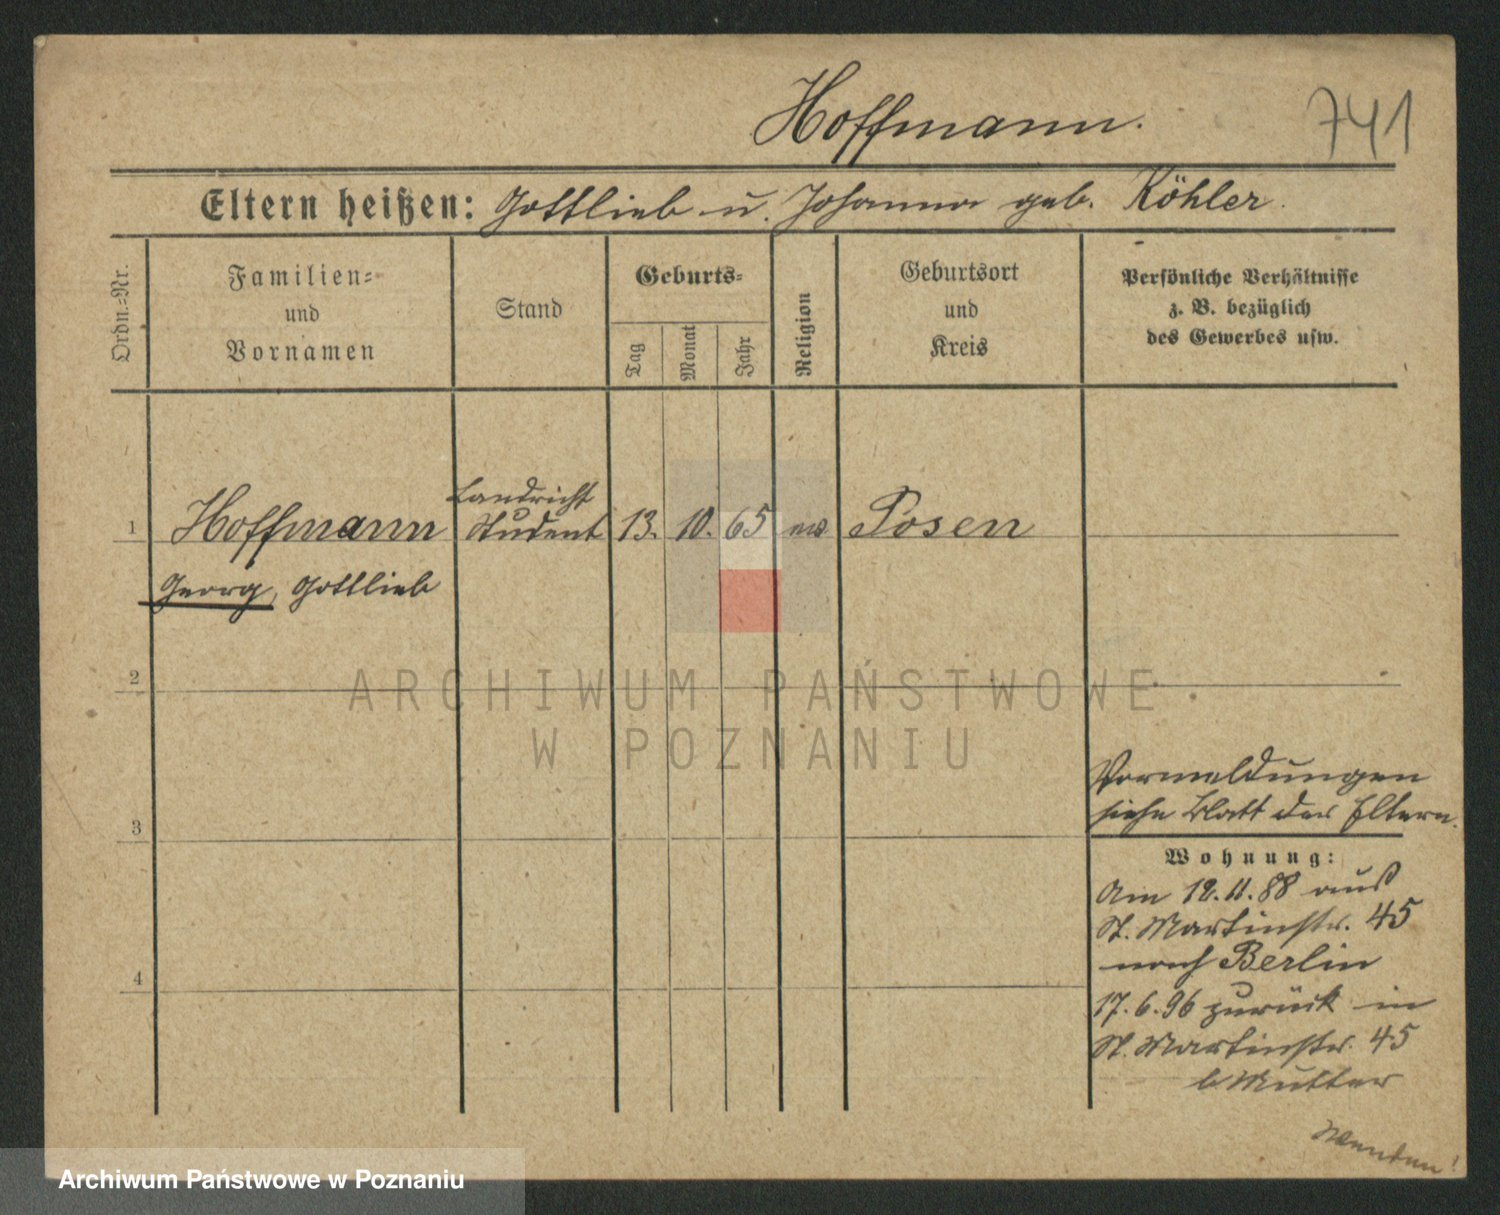 Hoffmann.
741
Eltern heißen: Gottlieb u. Johanna geb. Köhler.
Ordn.-Nr.
Familien-
und
Vornamen
Stand
Geburts-
Tag
Monat
Jahr
Religion
Geburtsort
und
Kreis
Persönliche Verhältnisse
z. B. bezüglich
des Gewerbes usw.
Landricht
1 Hoffmann Student 13. 10. 65 ev Posen
Georg, Gottlieb
2
ARCHIWUM PAŃSTWOWE
W POZNANIU
Vormeldungen
siehe Blatt der Eltern.
3
Wohnung:
Am 12.11.88 aus
St. Martinstr. 45
nach Berlin
4
17.6.96 zurück in
St. Martinstr. 45
b Mutter
Wenden!
Archiwum Państwowe w Poznaniu